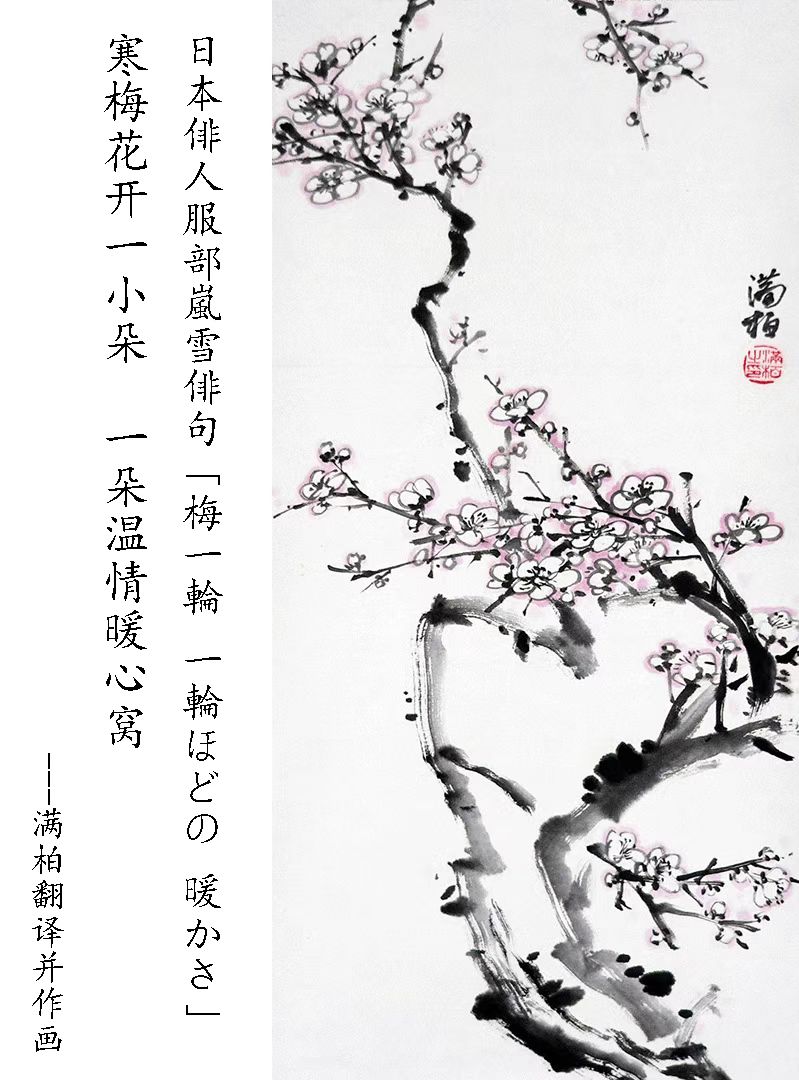 日本俳人服部嵐雪俳句「梅一輪 一輪ほどの 暖かさ」
寒梅花开一小朵 一朵温情暖心窝
———满柏翻译并作画
满柏
满柏之印